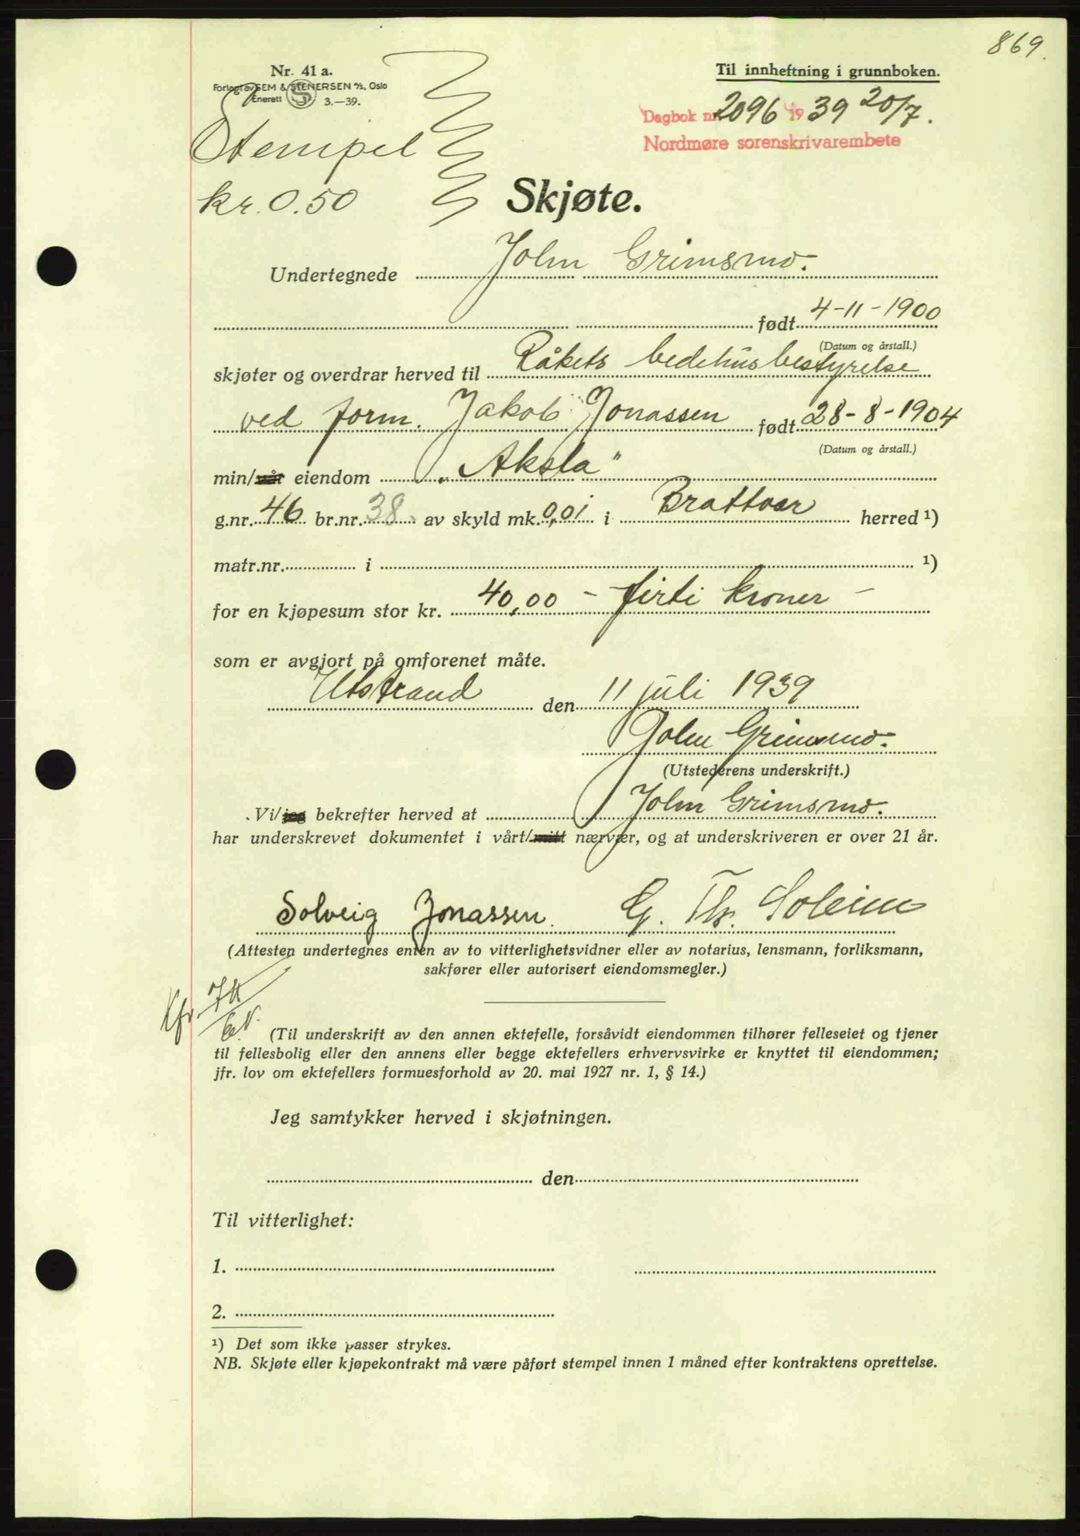 869.
Nr. 41 a.
Forlagt av SEM & STENERSEN A/S, Oslo
Enerett S 3.—39.
Til innheftning i grunnboken.
Dagbok nr. 2096 1939 20/7.
Nordmøre sorenskrivarembete
Stempel
kr. 0.50
Skjøte.
Undertegnede John Grimsmo.
født 4-11-1900
(Datum og årstall.)
skjøter og overdrar herved til Råkets bedehusbestyrelse
ved form. Jakob Jonassen født 28-8-1904
(Datum og årstall.)
min/vår eiendom „Aksla"
g.nr. 46 br.nr. 38 av skyld mk. 0,01 i Brattvær herred ¹)
matr.nr. i ¹)
for en kjøpesum stor kr. 40,00 - firti kroner -
som er avgjort på omforenet måte.
Utstrand den 11 juli 1939
John Grimsmo.
(Utstederens underskrift.)
Vi/jeg bekrefter herved at John Grimsmo.
har underskrevet dokumentet i vårt/mitt nærvær, og at underskriveren er over 21 år.
Solveig Jonassen. G. Th. Soleim
(Attesten undertegnes enten av to vitterlighetsvidner eller av notarius, lensmann, forliksmann,
sakfører eller autorisert eiendomsmegler.)
(Til underskrift av den annen ektefelle, forsåvidt eiendommen tilhører felleseiet og tjener
til fellesbolig eller den annens eller begge ektefellers erhvervsvirke er knyttet til eiendommen;
jfr. lov om ektefellers formuesforhold av 20. mai 1927 nr. 1, § 14.)
Jeg samtykker herved i skjøtningen.
den
Til vitterlighet:
1.
2.
¹) Det som ikke passer strykes.
NB. Skjøte eller kjøpekontrakt må være påført stempel innen 1 måned efter kontraktens oprettelse.